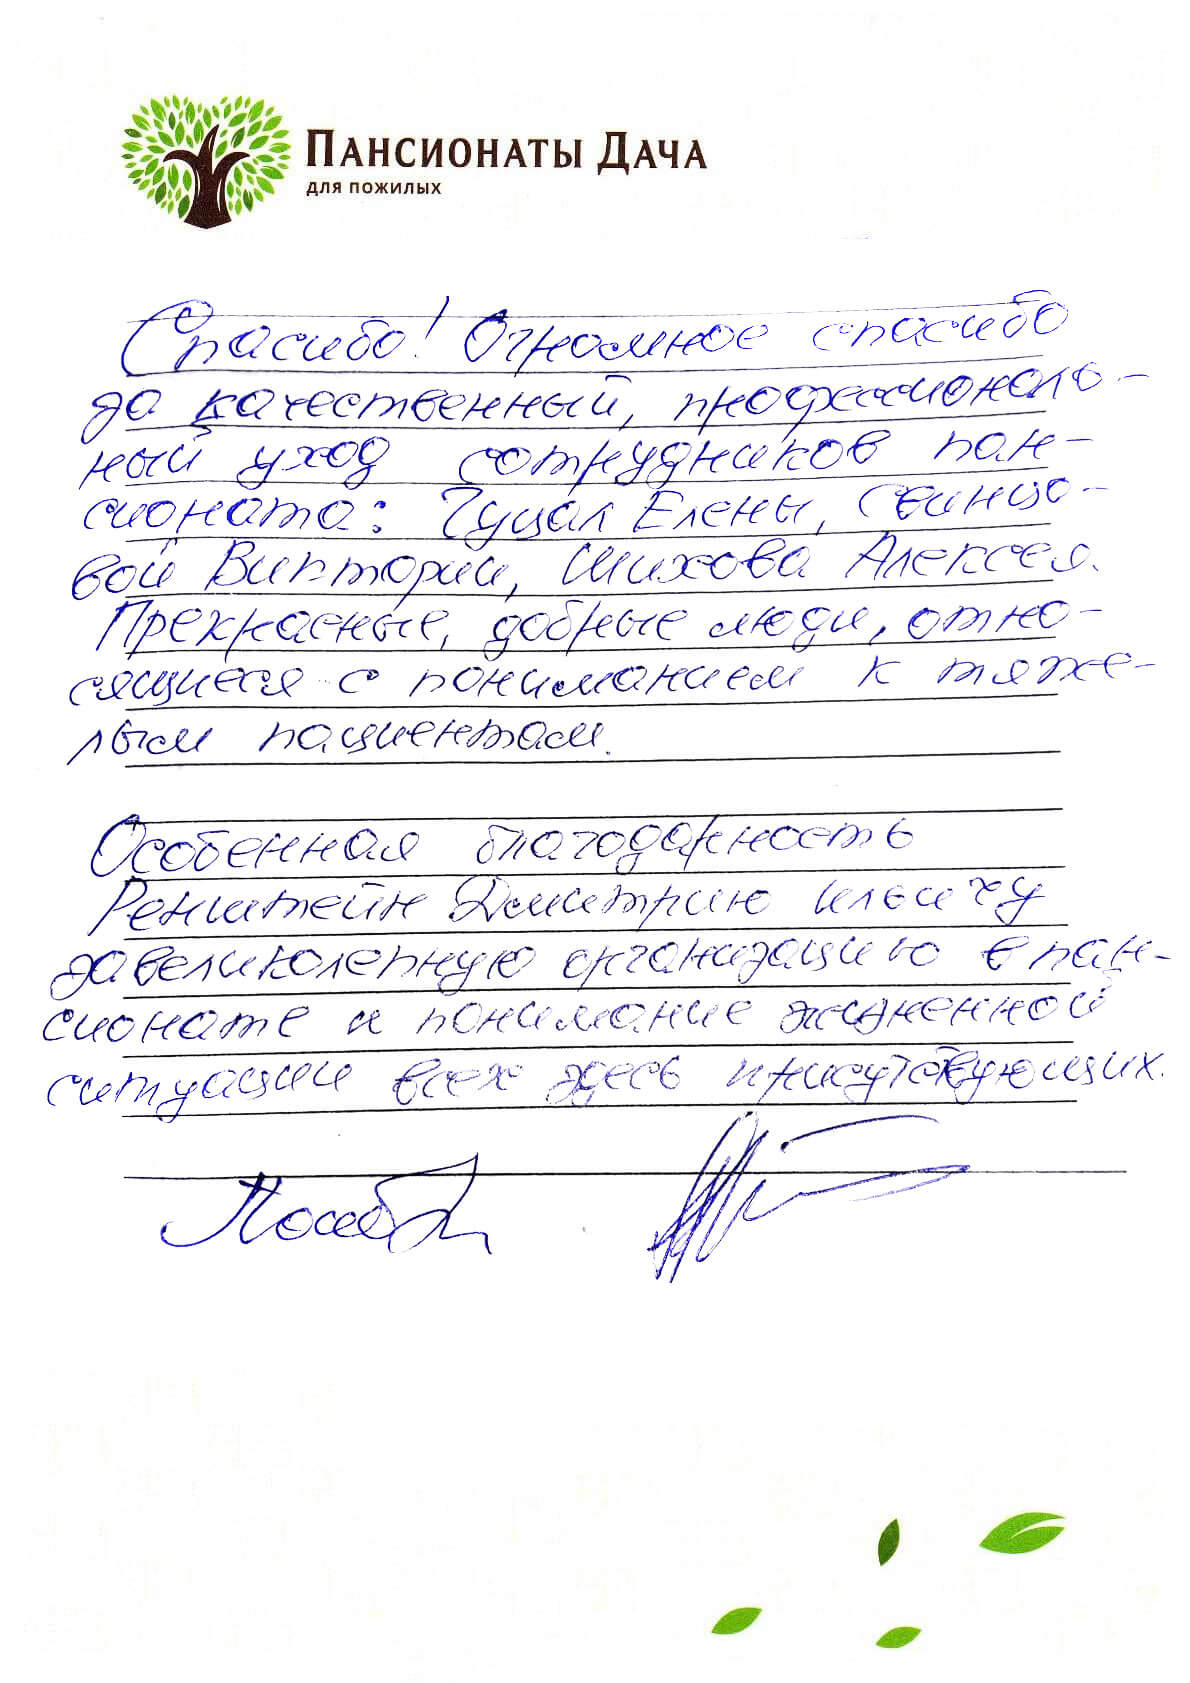 Пансионаты Дача
для пожилых
Спасибо! Огромное спасибо
за качественный, профессиональ-
ный уход сотрудников пан-
сионата: Гуцал Елены, Свинцо-
вой Виктории, Шихова Алексея.
Прекрасные, добрые люди, отно-
сящиеся с пониманием к тяже-
лым пациентам.
Особенная благодарность
Ренштейн Дмитрию Ильичу
за великолепную организацию в пан-
сионате и понимание жизненной
ситуации всех здесь присутствующих.